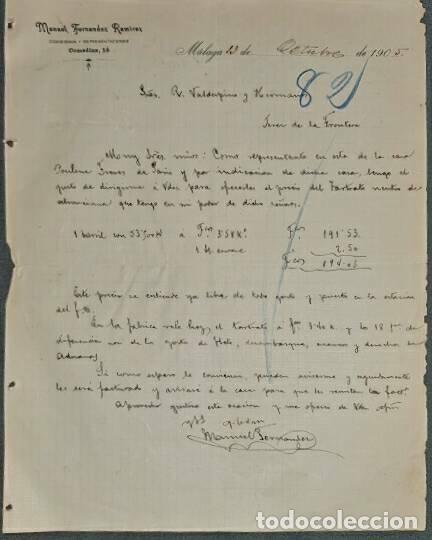 Manuel Fernandez Ramirez
COMISIONES Y REPRESENTACIONES
Comedias, 16
Málaga 23 de Octubre de 1905.
82
Sres. R. Valdespino y Hermano
Jerez de la Frontera
Muy Sres. mios: Como representante en esta de la casa
Poulenc Freres de Paris y por indicacion de dicha casa, tengo el
gusto de dirigirme á Vdes para ofrecerles el precio del Tartrato neutro de
que tengo en mi poder de dichos señores.
1 barril con á Fcos 3'58 Ko. Fcos 191'53
1 id. envase " 2.50
Fcos 194.03
Este precio se entiende ya libre de todo gasto y puesto en la estacion
del f.c.
En la fabrica vale hoy, el tartrato á fcos k. y los
diferencia son de los gastos de flete, desembarque, y derechos de
Aduanas.
Si como espero le conviene, pueden avisarme y seguidamente
les será facturado y avisaré á la casa para que le remitan la factª
Aprovecho gustoso esta ocasion y me ofrezco de Vds. afmo
y SS q. b. s. m.
Manuel Fernandez
todocoleccion.net